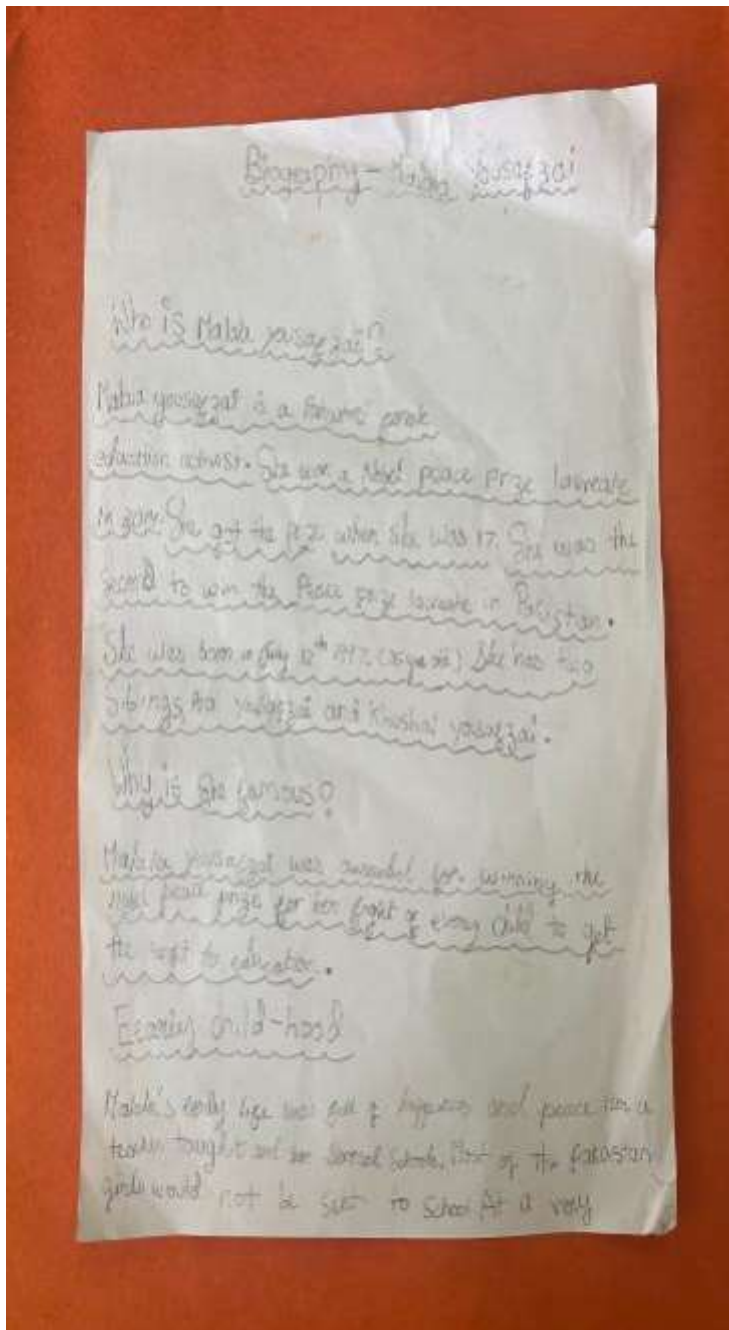 Biography - Malala yousagzai
Who is Malala yousagzai?
Malala yousagzai is a female
education activist. She won a Nobel peace prize laureate
in 2014. She got the prize when she was 17. She was the
second to win the Peace prize laureate in Pakistan.
She was born in July 12th 1997. She has two
Siblings yousagzai and Khushal yousagzai.
Why is she famous?
Malala yousagzai was awarded for winning the
nobel peace prize for her fight of every child to get
the right to education.
Eearly child-hood
Malala's early life was full of happiness and peace
taught and Schools. Most of the
girls would not be sent to School. At a very